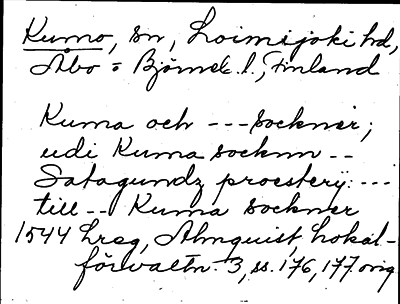 Kumo, sn, Loimijoki hd,
Åbo o Björneb. l., Finland
Kuma och --- sockner;
udi Kuma socknn --
Satagundz proestery: ---
till -- Kuma sockner
1544 hreg, Almquist, Lokal-
förvaltn. 3, ss. 176, 177 orig.